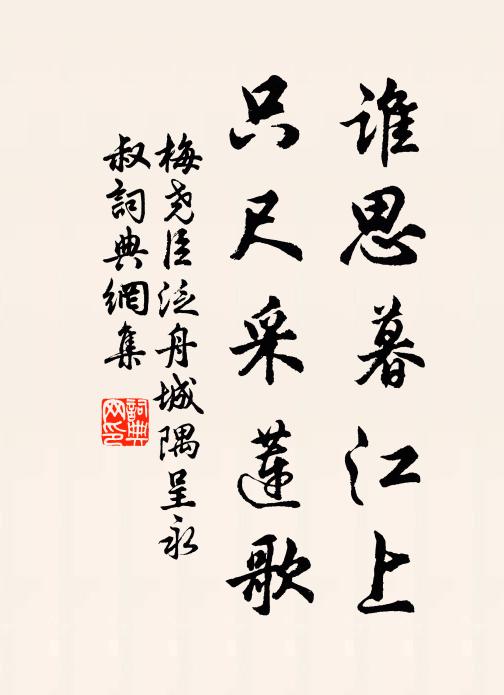 谁思暮江上
只尺采莲歌
梅尧臣泛舟城隅呈永
叔詞典網集
詞典
网印